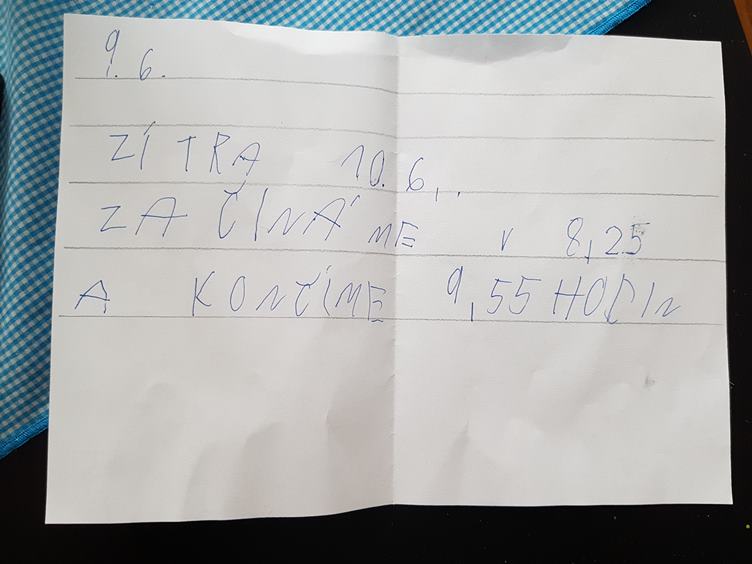 9.6.
ZÍTRA 10.6,.
ZAČÍNÁME v 8,25
A KONČÍME 9,55 HODIN